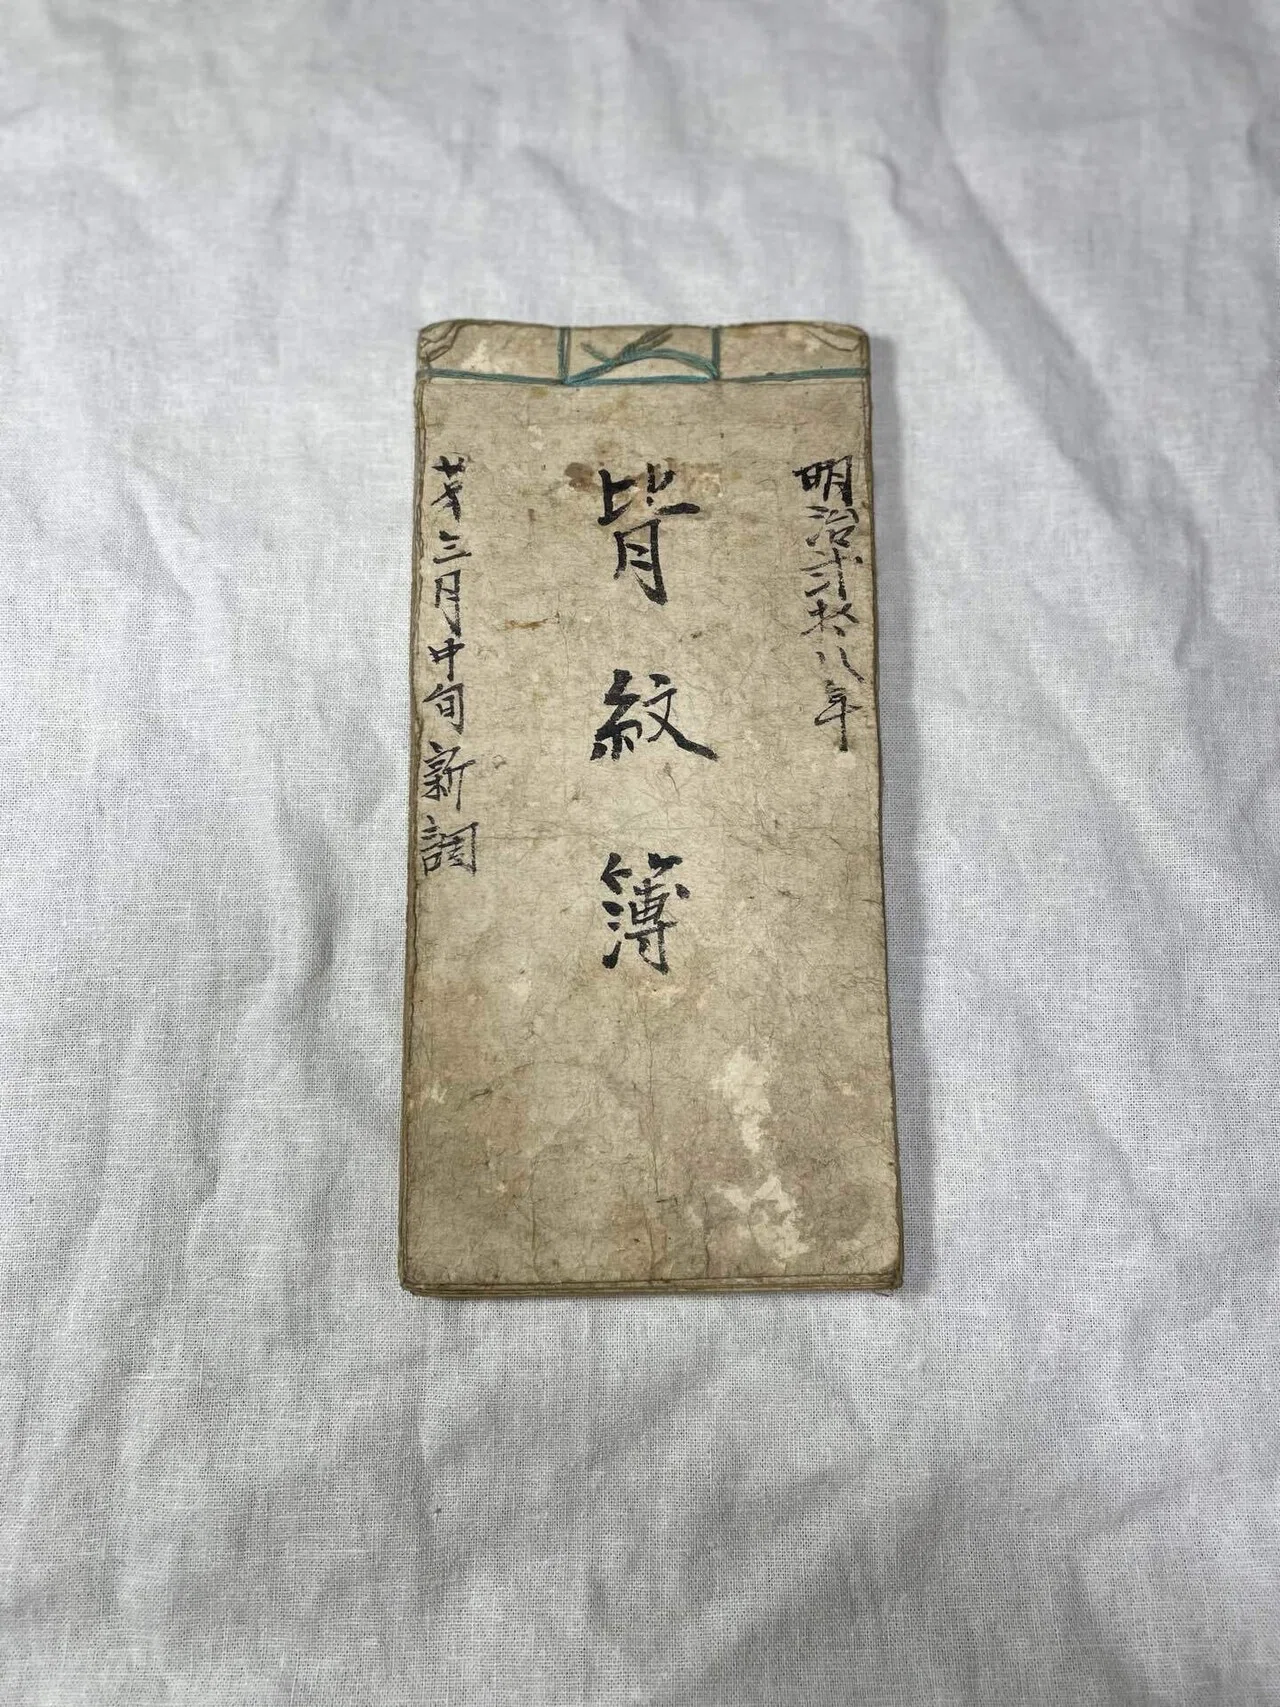 明治弐拾八年
皆紋簿
第三月中旬新調